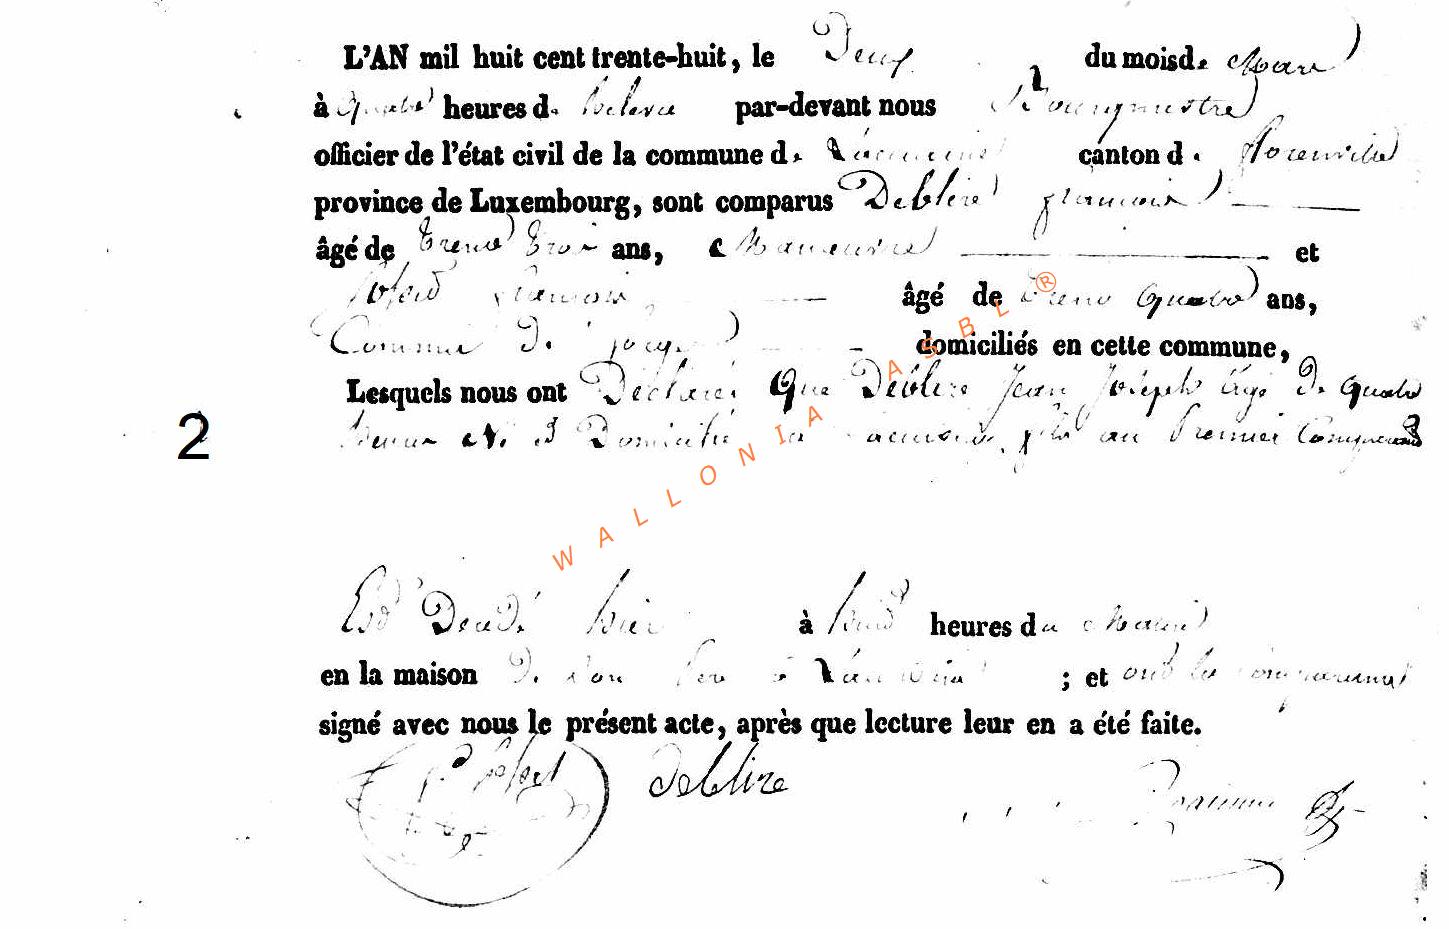 L'AN mil huit cent trente-huit, le Deux du mois de Mars
à quatre heures de Relevé par-devant nous Bourgmestre
officier de l'état civil de la commune de canton de florenville
province de Luxembourg, sont comparus Deblire françois
âgé de trente trois ans, Manœuvre et
françois âgé de trente quatre ans,
Commis de forge domiciliés en cette commune,
Lesquels nous ont Déclaré que Deblire Jean Joseph âgé de quatre
2
Né et Domicilié à fils au Premier Comparant
WALLONIA ASBL ®
Est Décédé hier à huit heures du Matin
en la maison de son Père à ; et ont les comparants
signé avec nous le présent acte, après que lecture leur en a été faite.
deblire